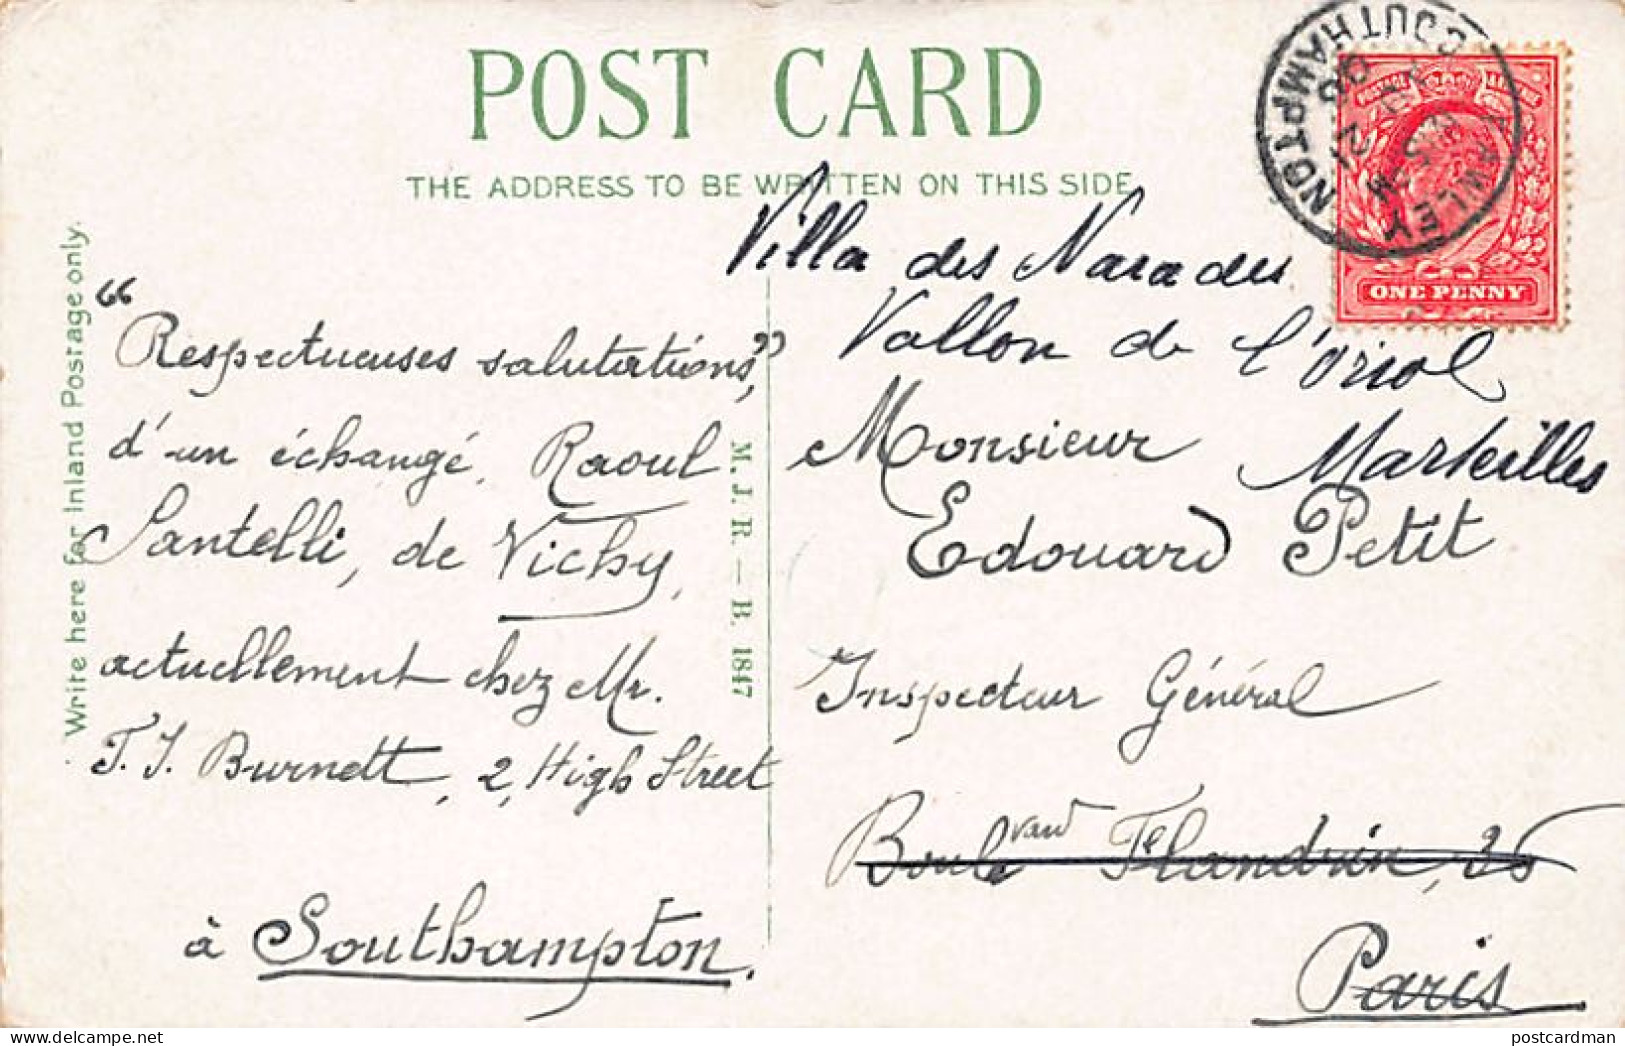 POST CARD
THE ADDRESS TO BE WRITTEN ON THIS SIDE
Write here for Inland Postage only.
"Respectueuses salutations,"
d'un échangé, Raoul
Santelli, de Vichy,
actuellement chez Mr.
T. J. Burnett, 2, High Street
à Southampton.
M. J. R. — B. 1847
Villa des
Vallon de l'Oriol
Marseilles
Monsieur
Edouard Petit
Inspecteur Général
Boulevard Flandrin,
Paris
FAWLEY
SOUTHAMPTON
ONE PENNY
postcardman